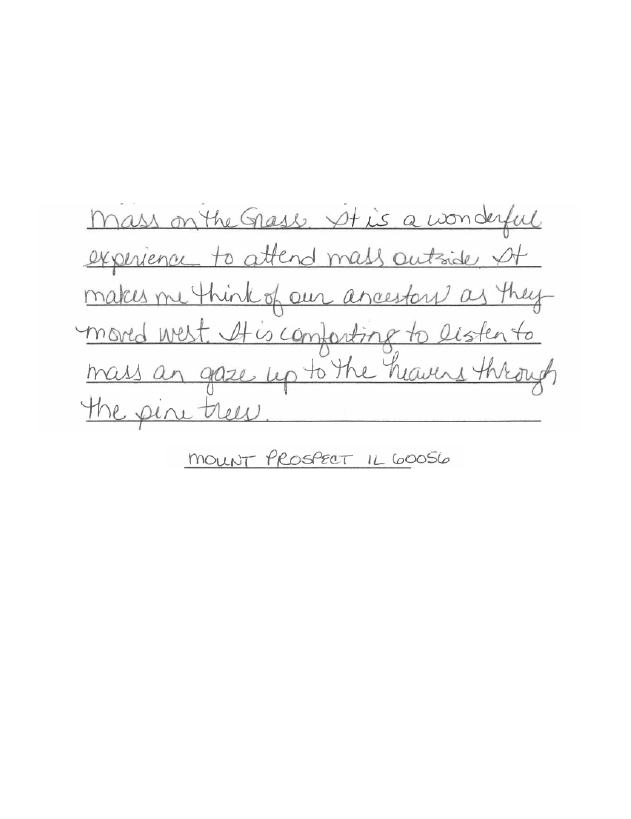 Mass on the Grass. It is a wonderful
experience to attend mass outside. It
makes me think of our ancestors as they
moved west. It is comforting to listen to
mass an gaze up to the heavens through
the pine trees.
MOUNT PROSPECT IL 60056